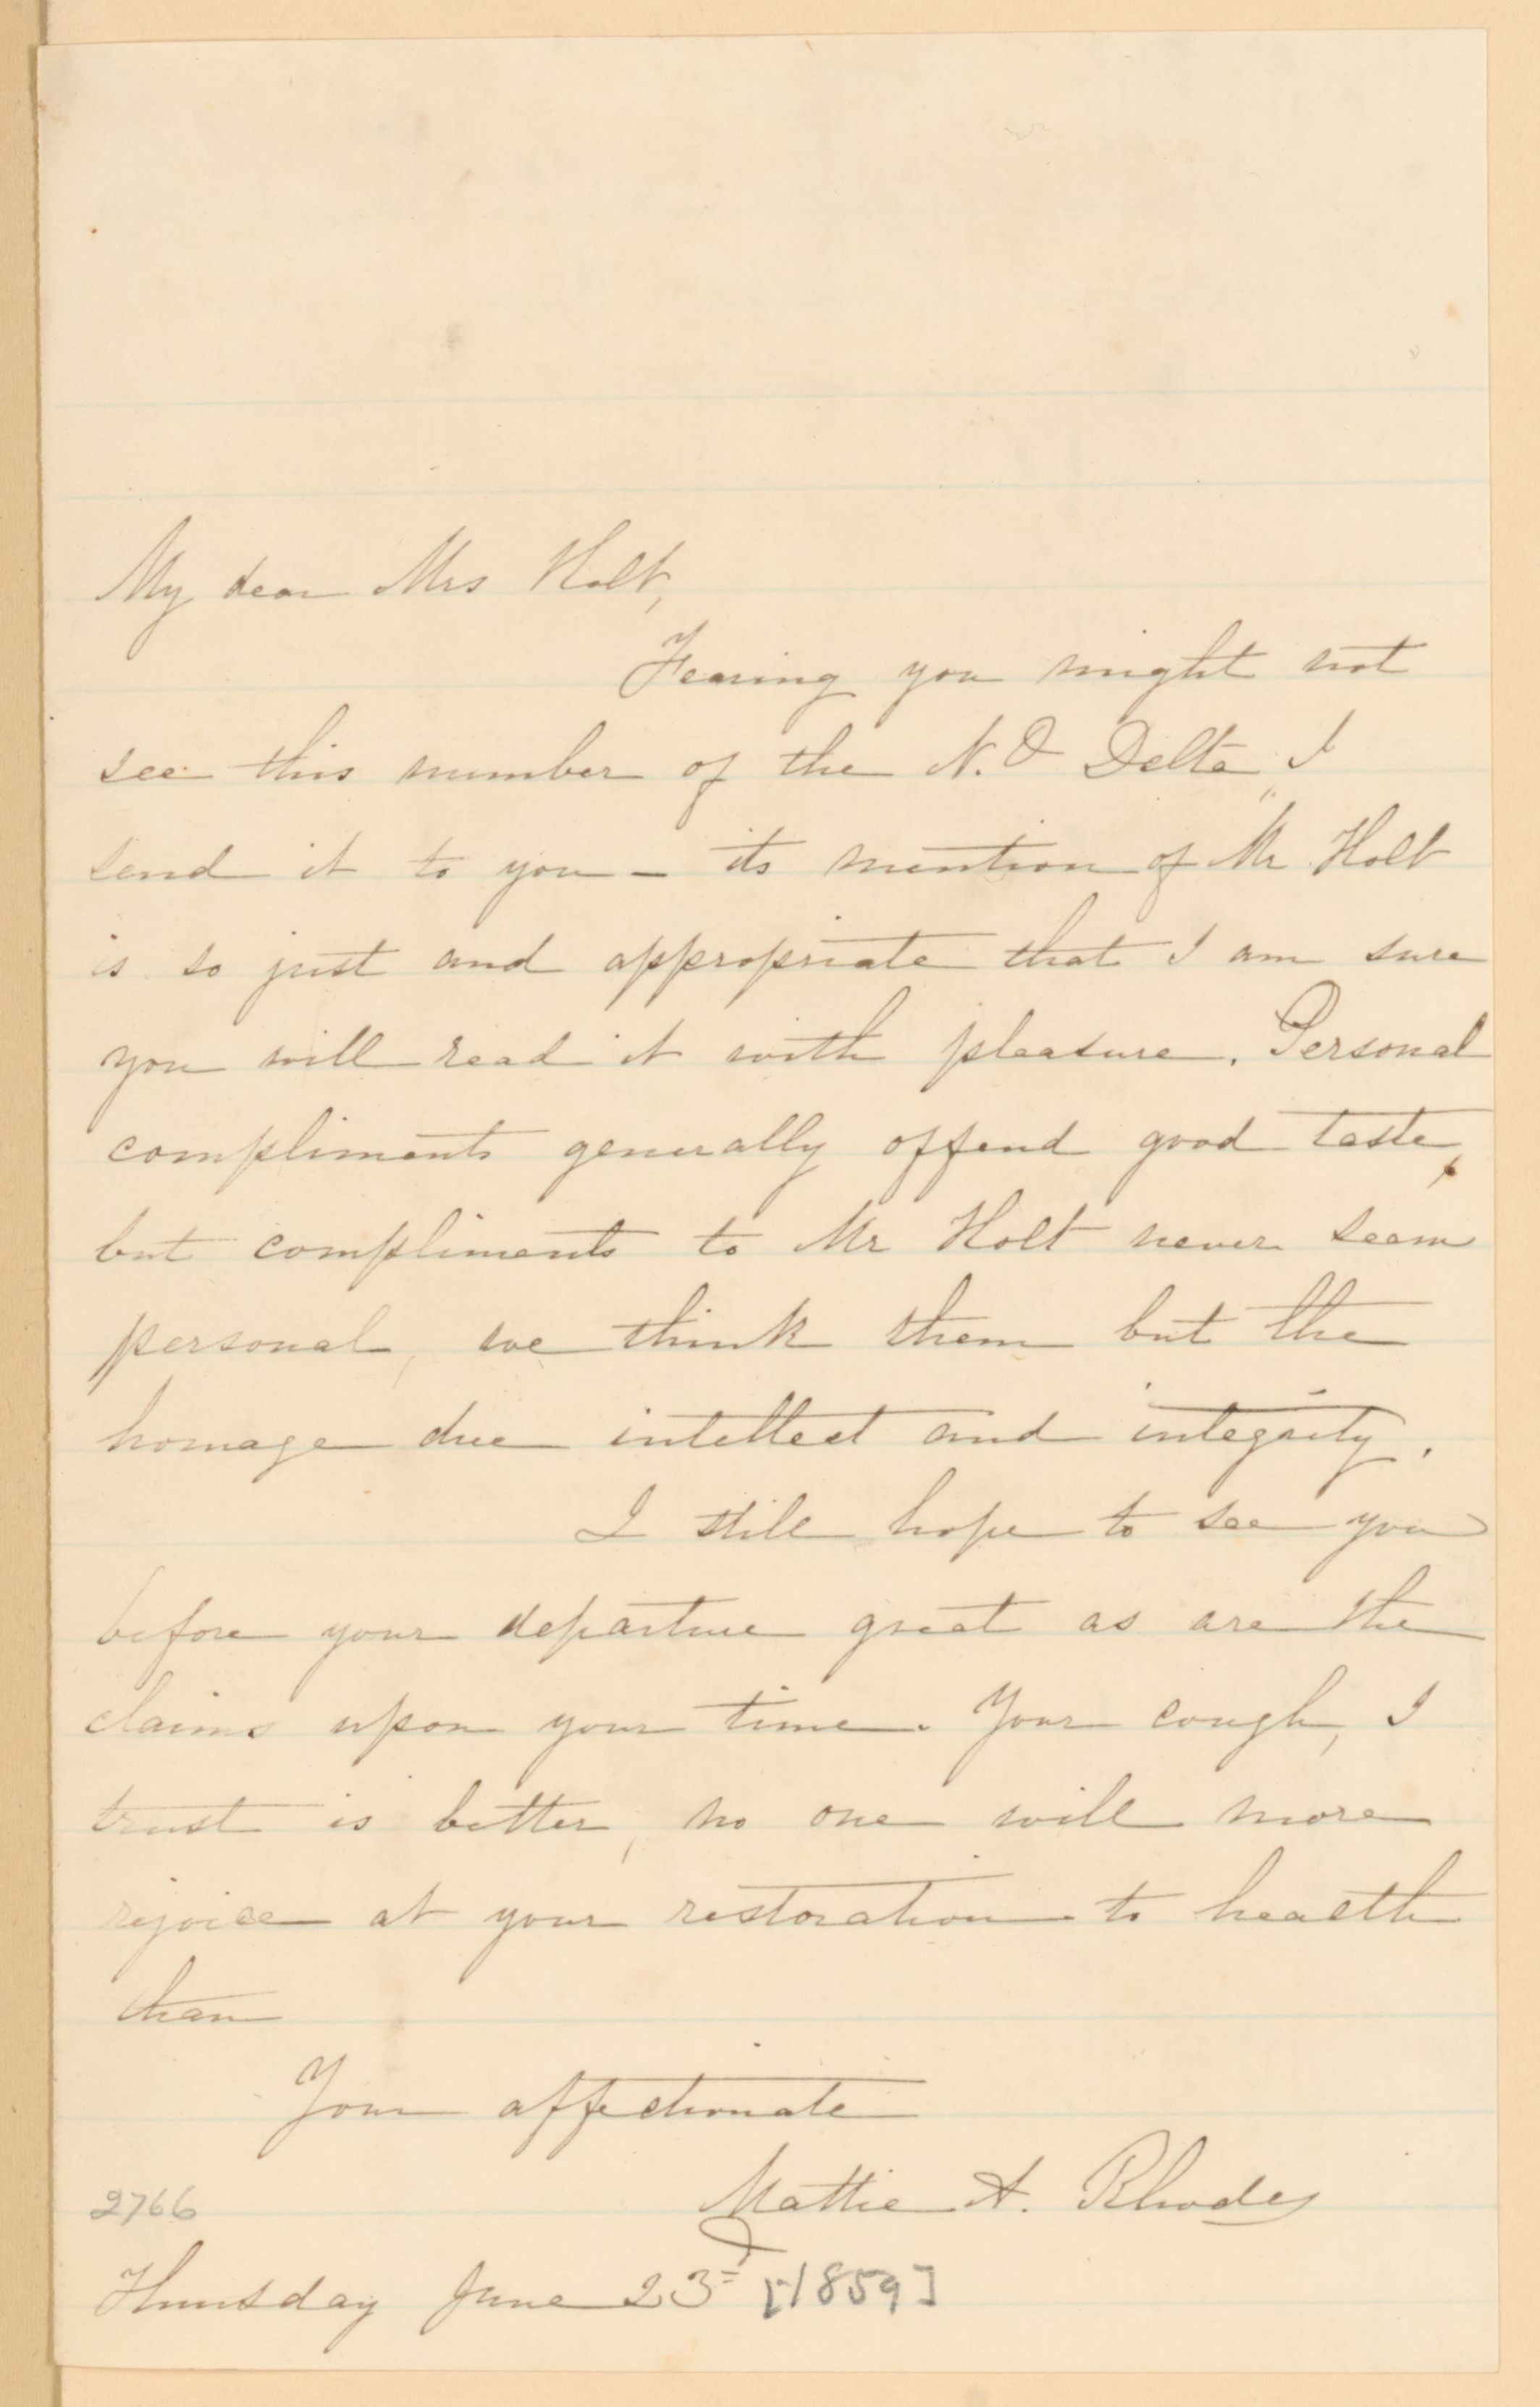 My dear Mrs Holt,
Fearing you might not
see this number of the N. O Delta, I
send it to you – its mention of Mr Holt
is so just and appropriate that I am sure
you will read it with pleasure. Personal
compliments generally offend good taste,
but compliments to Mr Holt never seem
personal, we think them but the
homage due intellect and integrity.
I still hope to see you
before your departure great as are the
claims upon your time. Your cough, I
trust is better, no one will more
rejoice at your restoration to health
than
Your affectionate
Mattie A. Rhodes
2766
Thursday June 23d [1859]